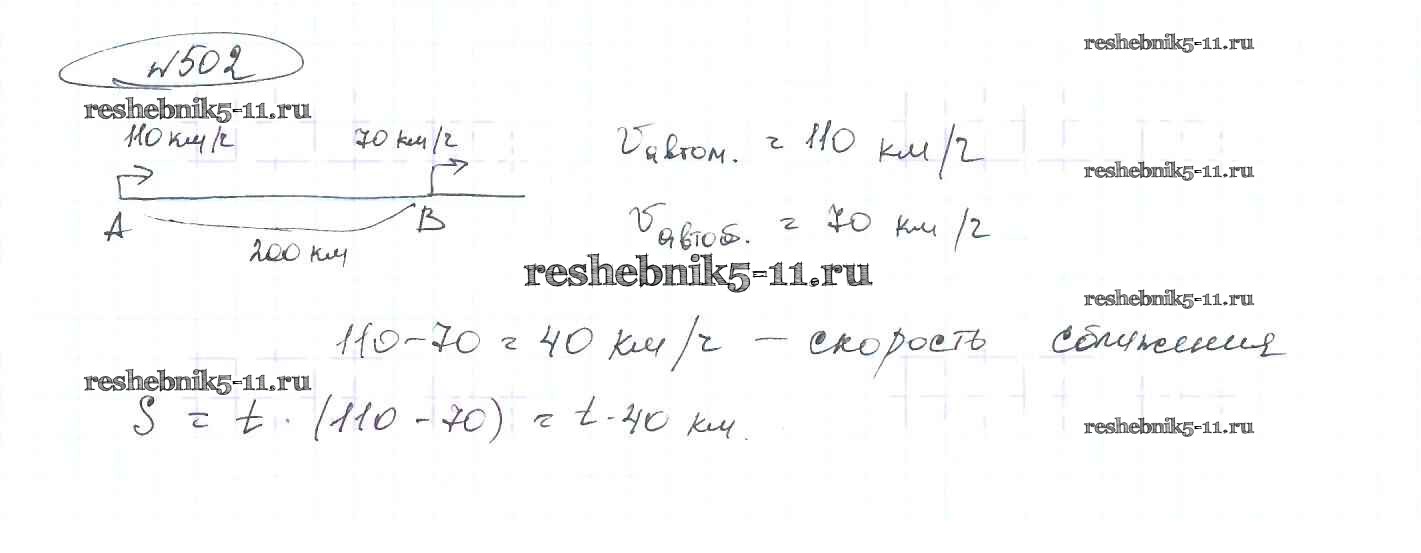 №502
reshebnik5-11.ru
reshebnik5-11.ru
110 км/ч 70 км/ч
Vавтом. = 110 км/ч
reshebnik5-11.ru
A B
200 км
Vавтоб. = 70 км/ч
reshebnik5-11.ru
reshebnik5-11.ru
110-70 = 40 км/ч — скорость сближения
reshebnik5-11.ru
S = t · (110 - 70) = t · 40 км.
reshebnik5-11.ru